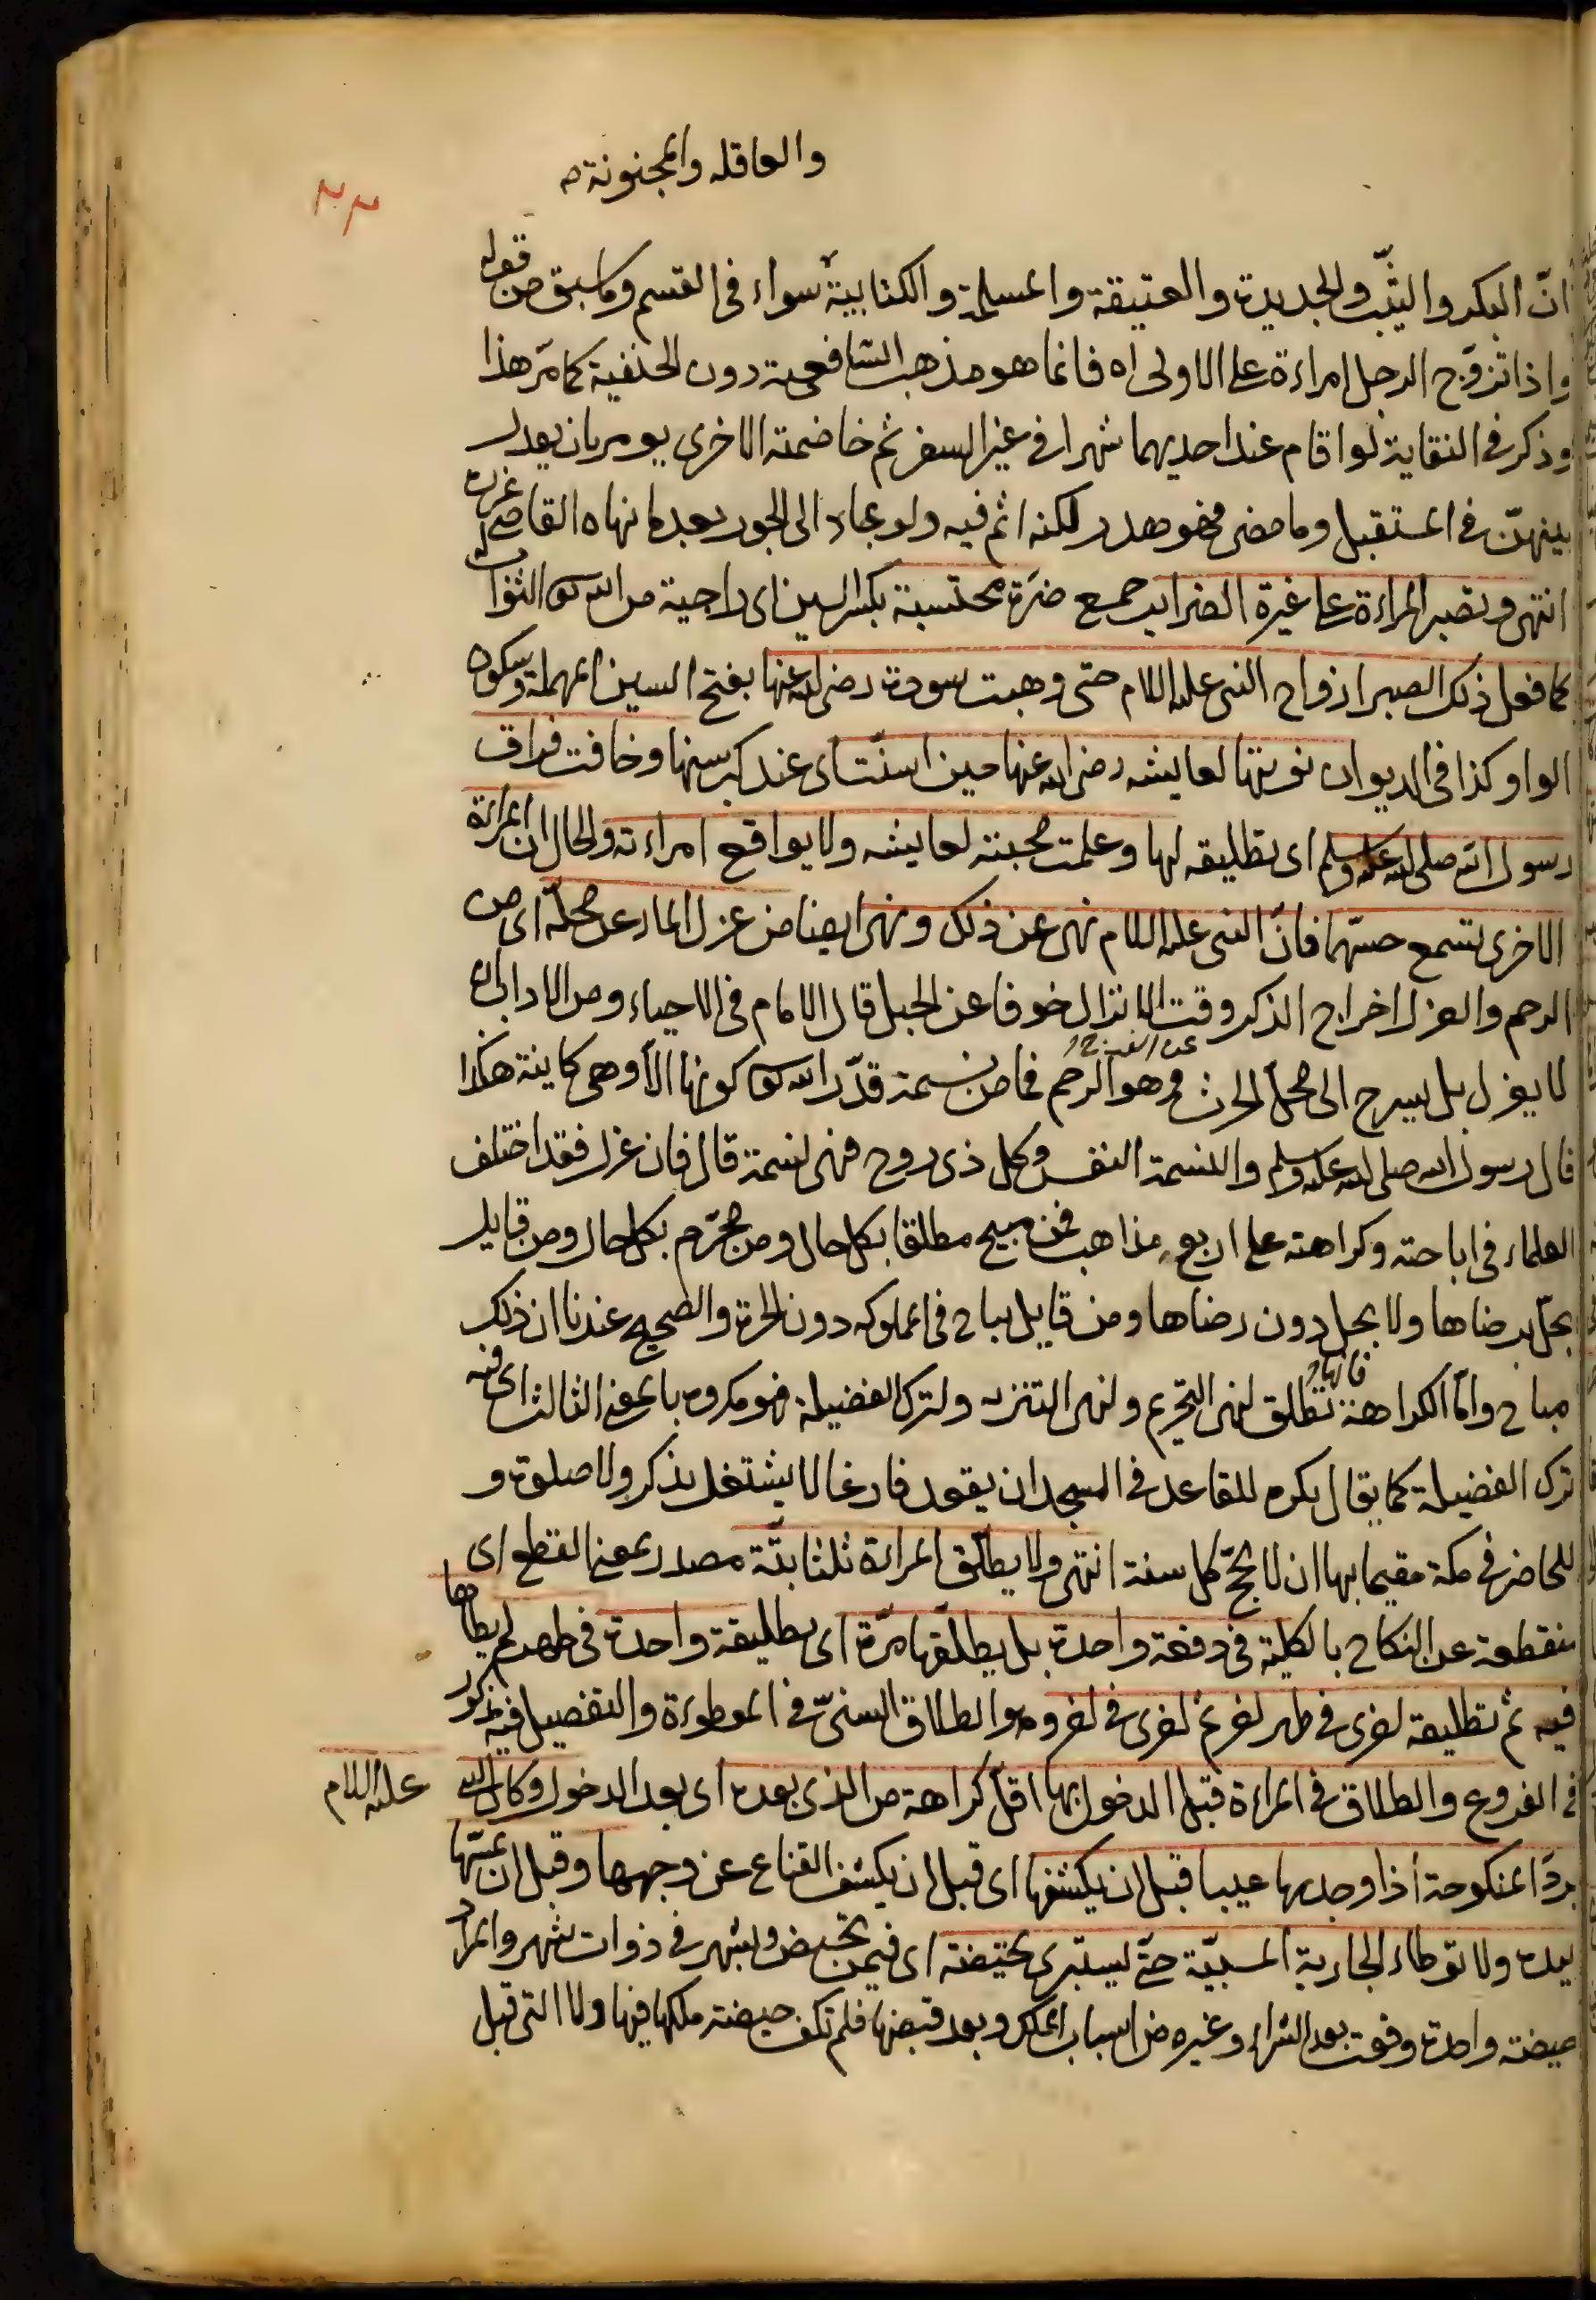 والعاقلة والمجنونة
٣٣
انّ البكر والثيّب والجديدة والعتيقة والمسلمة والكتابية سواء فى القسم وما سبق من قوله
واذا تزوّج الرجل امراءة على الاولى اه فانما هو مذهب الشافعية دون الحنفية كما مرّ هذا
وذكر فى النقاية لو اقام عند احديهما شهرا فى غير السفر ثم خاصمته الاخرى يومر بان يعدل
بينهنّ فى المستقبل وما مضى فهو هدر لكنه اثم فيه ولو عاد الى الجور بعد ما نهاه القاضى عزره
انتهى وتصبر المراءة على غيرة الضراير جمع ضرّة محتسبة بكسر السين اى راجية من الله تعالى الثواب
كما فعل ذلك الصبر ازواج النبى عليه السلام حتى وهبت سودة رضى الله عنها بفتح السين المهملة وسكون
الواو كذا فى الديوان نوبتها لعايشه رضى الله عنها حين اسنّت اى عند كبر سنها وخافت فراق
رسول الله صلى الله عليه وسلم اى تطليقه لها وعلمت محبته لعايشه ولا يواقع امراءته والحال ان المراءة
الاخرى تسمع حسّهما فانّ النبى عليه السلام نهى عن ذلك ونهى ايضا من عزل الماء عن محلّه اى من
الرحم والعزل اخراج الذكر وقت الانزال خوفا عن الحبل قال الامام فى الاحياء ومن الاداب ان
لا يعزل بل يسرح الى محلّ الحرث وهو الرحم فما من نسمة قدّر الله تعالى كونها الّا وهى كاينة هكذا
قال رسول الله صلى الله عليه وسلم والنسمة النفس وكل ذى روح فهى نسمة قال فان عزل فقد اختلف
العلماء فى اباحته وكراهته على اربع مذاهب فمن مبيح مطلقا بكل حال ومن محرّم بكل حال ومن قايل
يحلّ برضاها ولا يحل دون رضاها ومن قايل يباح فى المملوكه دون الحرة والصحيح عندنا ان ذلك
مباح وامّا الكراهة فانها تطلق لنهى التحريم ولنهى التنزيه ولترك الفضيلة فهو مكروه بالمعنى الثالث اى فيه
ترك الفضيلة كما يقال يكره للقاعد فى المسجد ان يقعد فارغا لا يشتغل بذكر ولا صلوة و
للحاضر فى مكة مقيما بها ان لا يحجّ كل سنة انتهى ولا يطلّق المراءة ثلثا بتّة مصدر بمعنى القطع اى
منقطعة عن النكاح بالكلية فى دفعة واحدة بل يطلّقها مرّة اى تطليقة واحدة فى طهر لم يطاها
فيه ثم تطليقة اخرى فى طهر اخر ثم اخرى فى اخر وهو الطلاق السنىّ فى الموطوءة والتفصيل فيه مذكور
فى الفروع والطلاق فى المراءة قبل الدخول بها اقلّ كراهة من الذى بعده اى بعد الدخول وكان النبى عليه السلام
يردّ المنكوحة اذا وجد بها عيبا قبل ان يكشفها اى قبل ان يكشف القناع عن وجهها وقبل ان يمسّها
بيده ولا توطاء الجارية المسبيّة حتّى يستبرى بحيضة اى فيمن تحيض وبشهر فى ذوات شهر والمراد
حيضة واحدة وقعت بعد الشراء وغيره من اسباب الملك وبعد قبضها فلم تكف حيضة ملكها فيها ولا التى قبل